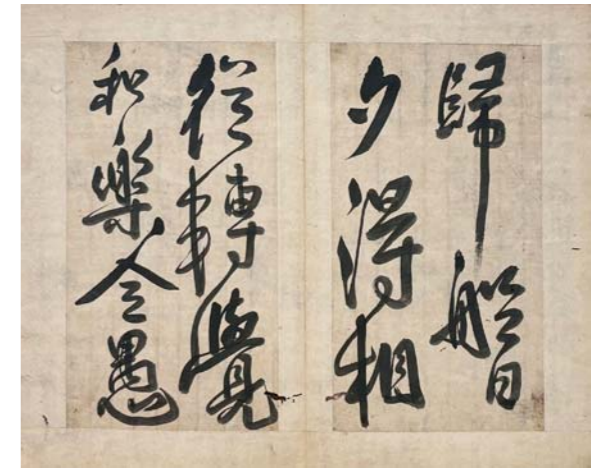 歸船日
夕得相
從轉覺
和樂令愚